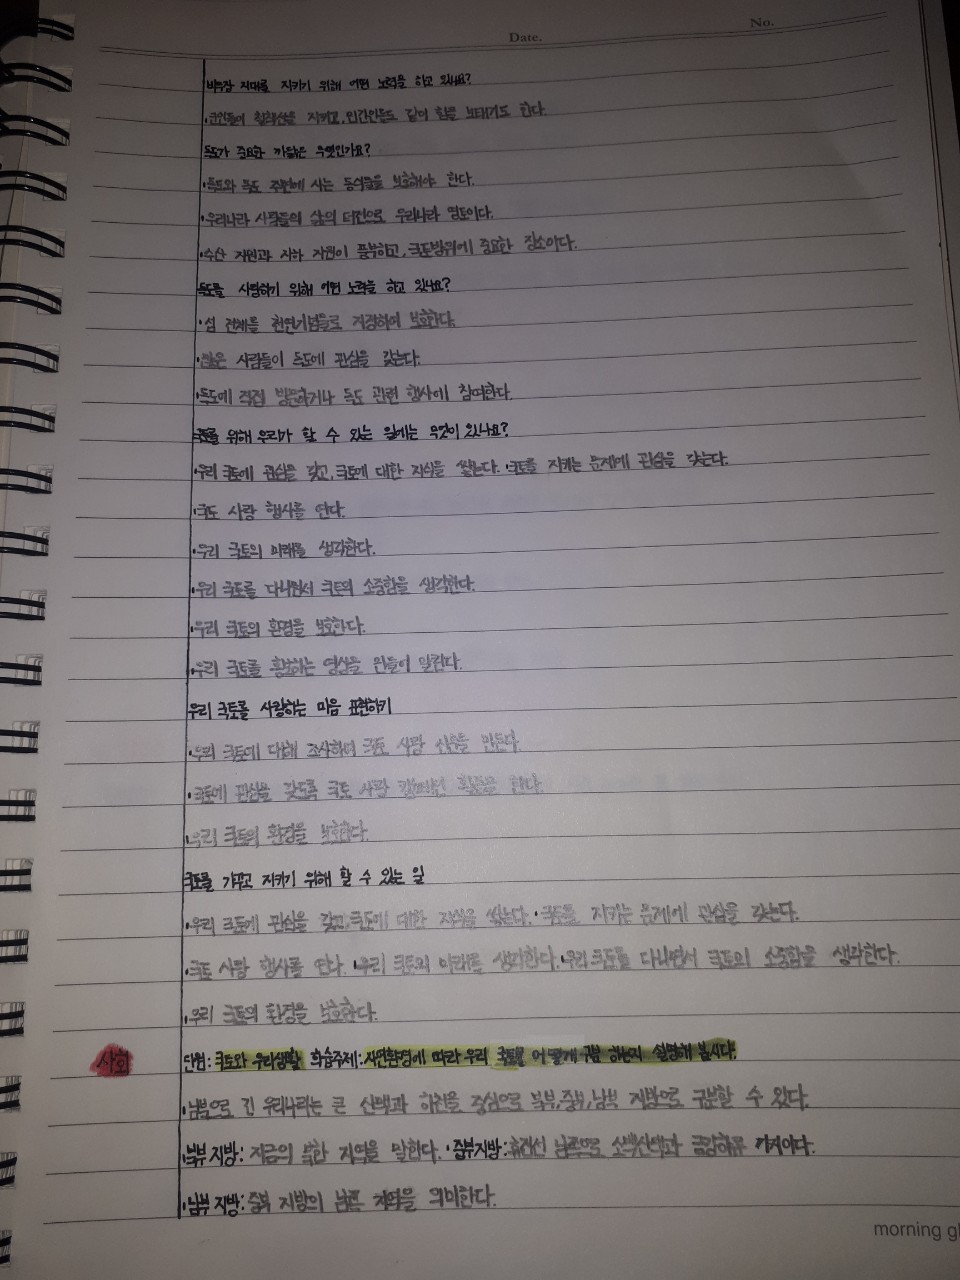 Date.
No.
비무장 지대를 지키기 위해 어떤 노력을 하고 있나요?
·군인들이 휴전선을 지키고, 민간인들도 같이 힘을 보태기도 한다.
독도가 중요한 까닭은 무엇인가요?
·독도와 독도 주변에 사는 동식물을 보호해야 한다.
·우리나라 사람들의 삶의 터전으로 우리나라 영토이다.
·수산 자원과 지하 자원이 풍부하고, 국토방위에 중요한 장소이다.
독도를 사랑하기 위해 어떤 노력을 하고 있나요?
·섬 전체를 천연기념물로 지정하여 보호한다.
·많은 사람들이 독도에 관심을 갖는다.
·독도에 직접 방문하거나 독도 관련 행사에 참여한다.
국토를 위해 우리가 할 수 있는 일에는 무엇이 있나요?
·우리 국토에 관심을 갖고, 국토에 대한 지식을 쌓는다. ·국토를 지키는 문제에 관심을 갖는다.
·국토 사랑 행사를 연다.
·우리 국토의 미래를 생각한다.
·우리 국토를 다니면서 국토의 소중함을 생각한다.
·우리 국토의 환경을 보호한다.
·우리 국토를 홍보하는 영상을 만들어 알린다.
우리 국토를 사랑하는 마음 표현하기
·우리 국토에 대해 조사하여 국토 사랑 신문을 만든다.
·국토에 관심을 갖도록 국토 사랑 캠페인 활동을 한다.
·우리 국토의 환경을 보호한다.
국토를 가꾸고 지키기 위해 할 수 있는 일
·우리 국토에 관심을 갖고, 국토에 대한 지식을 쌓는다. ·국토를 지키는 문제에 관심을 갖는다.
·국토 사랑 행사를 연다. ·우리 국토의 미래를 생각한다. ·우리 국토를 다니면서 국토의 소중함을 생각한다.
·우리 국토의 환경을 보호한다.
사회 단원: 국토와 우리생활 학습주제: 자연환경에 따라 우리 국토를 어떻게 구분 하는지 설명해 봅시다.
·남북으로 긴 우리나라는 큰 산맥과 하천을 중심으로 북부, 중부, 남부 지방으로 구분할 수 있다.
·북부 지방: 지금의 북한 지역을 말한다. ·중부지방: 휴전선 남쪽으로 소백산맥과 금강하류 까지이다.
·남부 지방: 중부 지방의 남쪽 지역을 의미한다.
morning gl